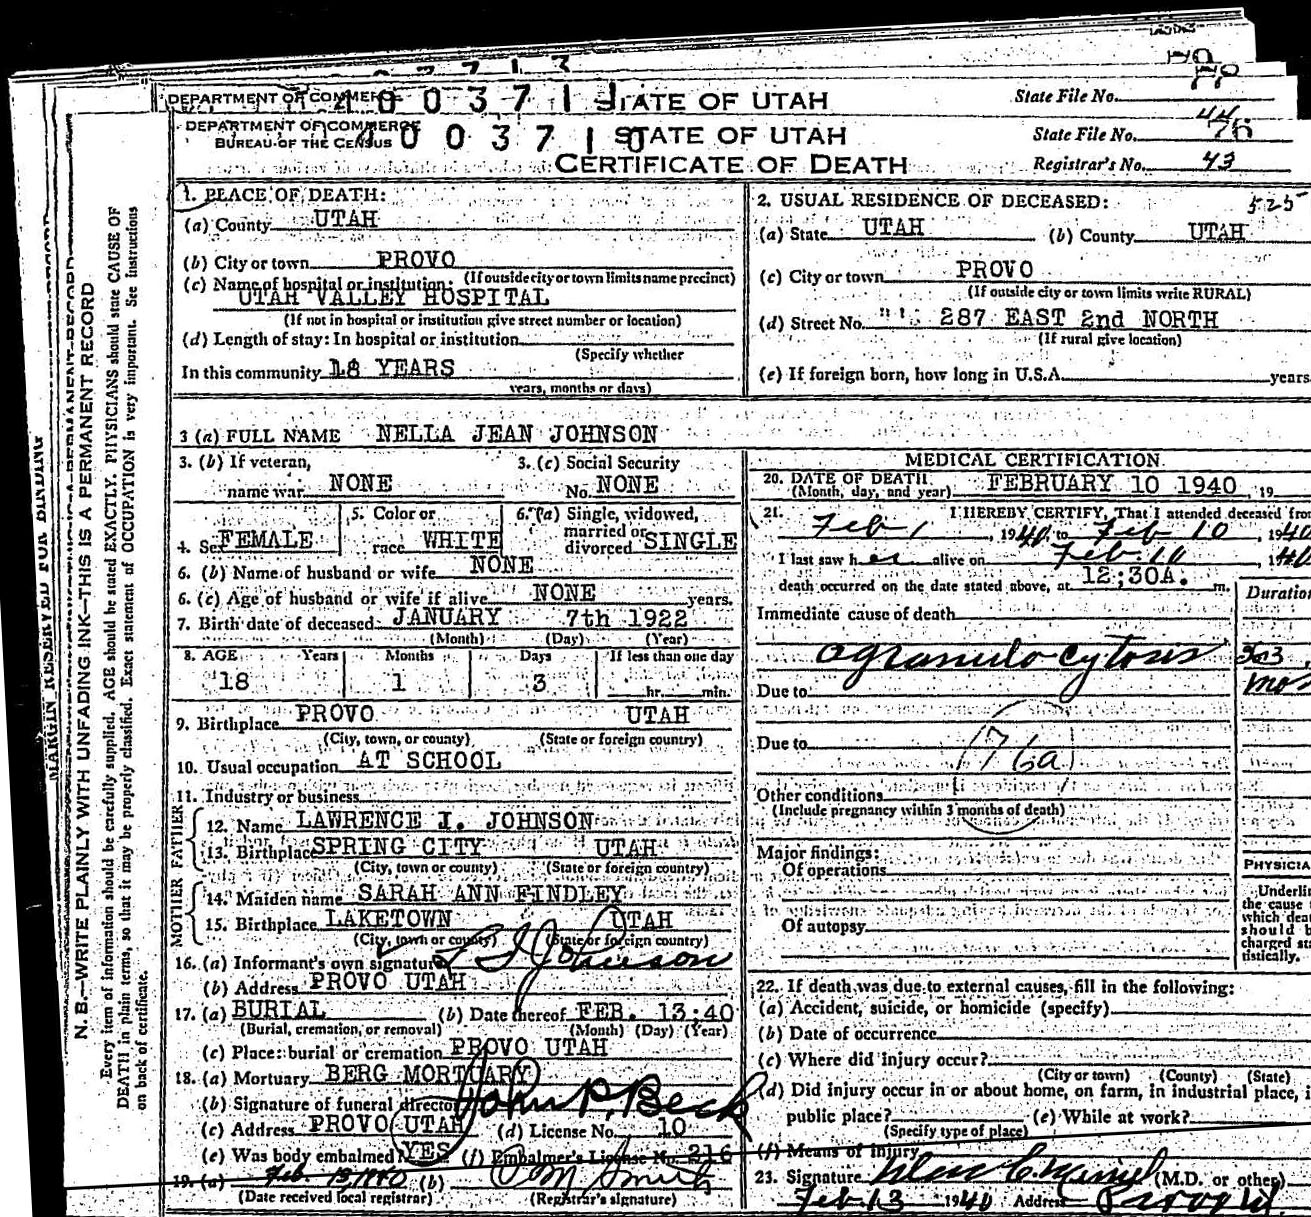 DEPARTMENT OF COMMERCE 400371 STATE OF UTAH State File No.
DEPARTMENT OF COMMERCE
BUREAU OF THE CENSUS
4003710 STATE OF UTAH State File No. 76
CERTIFICATE OF DEATH Registrar's No. 43
1. PLACE OF DEATH:
(a) County UTAH
(b) City or town PROVO
(If outside city or town limits name precinct)
(c) Name of hospital or institution:
UTAH VALLEY HOSPITAL
(If not in hospital or institution give street number or location)
(d) Length of stay: In hospital or institution
(Specify whether
In this community 18 YEARS
years, months or days)
2. USUAL RESIDENCE OF DECEASED: 525
(a) State UTAH (b) County UTAH
(c) City or town PROVO
(If outside city or town limits write RURAL)
(d) Street No. " " 287 EAST 2nd NORTH
(If rural give location)
(e) If foreign born, how long in U.S.A. years
3 (a) FULL NAME NELLA JEAN JOHNSON
3. (b) If veteran, name war NONE
3. (c) Social Security No. NONE
4. Sex FEMALE
5. Color or race WHITE
6. (a) Single, widowed, married or divorced SINGLE
6. (b) Name of husband or wife NONE
6. (c) Age of husband or wife if alive NONE years.
7. Birth date of deceased JANUARY 7th 1922
(Month) (Day) (Year)
8. AGE Years Months Days If less than one day
18 1 3 hr. min.
9. Birthplace PROVO UTAH
(City, town, or county) (State or foreign country)
10. Usual occupation AT SCHOOL
11. Industry or business
FATHER
12. Name LAWRENCE I. JOHNSON
13. Birthplace SPRING CITY UTAH
(City, town or county) (State or foreign country)
MOTHER
14. Maiden name SARAH ANN FINDLEY
15. Birthplace LAKETOWN UTAH
(City, town or county) (State or foreign country)
16. (a) Informant's own signature L I Johnson
(b) Address PROVO UTAH
17. (a) BURIAL (b) Date thereof FEB. 13:40
(Burial, cremation, or removal) (Month) (Day) (Year)
(c) Place: burial or cremation PROVO UTAH
18. (a) Mortuary BERG MORTUARY
(b) Signature of funeral director John P. Beck
(c) Address PROVO UTAH (d) License No. 10
(e) Was body embalmed YES (f) Embalmer's License No. 216
19. (a) Feb. 13, 1940 (b)
(Date received local registrar) (Registrar's signature)
MEDICAL CERTIFICATION
20. DATE OF DEATH
(Month, day, and year) FEBRUARY 10 1940, 19
21. I HEREBY CERTIFY, That I attended deceased from
Feb 1, 1940 to Feb 10, 1940
I last saw her alive on Feb. 10 1940
death occurred on the date stated above, at 12;30A. m.
Duration
Immediate cause of death
agranulocytosis
mos
Due to
Due to
176a
Other conditions
(Include pregnancy within 3 months of death)
Major findings:
Of operations
Of autopsy
PHYSICIA
Underli
the cause
which dea
should b
charged sta
tistically.
22. If death was due to external causes, fill in the following:
(a) Accident, suicide, or homicide (specify)
(b) Date of occurrence
(c) Where did injury occur?
(City or town) (County) (State)
(d) Did injury occur in or about home, on farm, in industrial place, i
public place? (e) While at work?
(Specify type of place)
(f) Means of injury
23. Signature (M.D. or other)
Feb 13 1940 Address Provo Ut.
MARGIN RESERVED FOR BINDING
N. B.—WRITE PLAINLY WITH UNFADING INK—THIS IS A PERMANENT RECORD
Every item of information should be carefully supplied. AGE should be stated EXACTLY. PHYSICIANS should state CAUSE OF
DEATH in plain terms, so that it may be properly classified. Exact statement of OCCUPATION is very important. See instructions
on back of certificate.